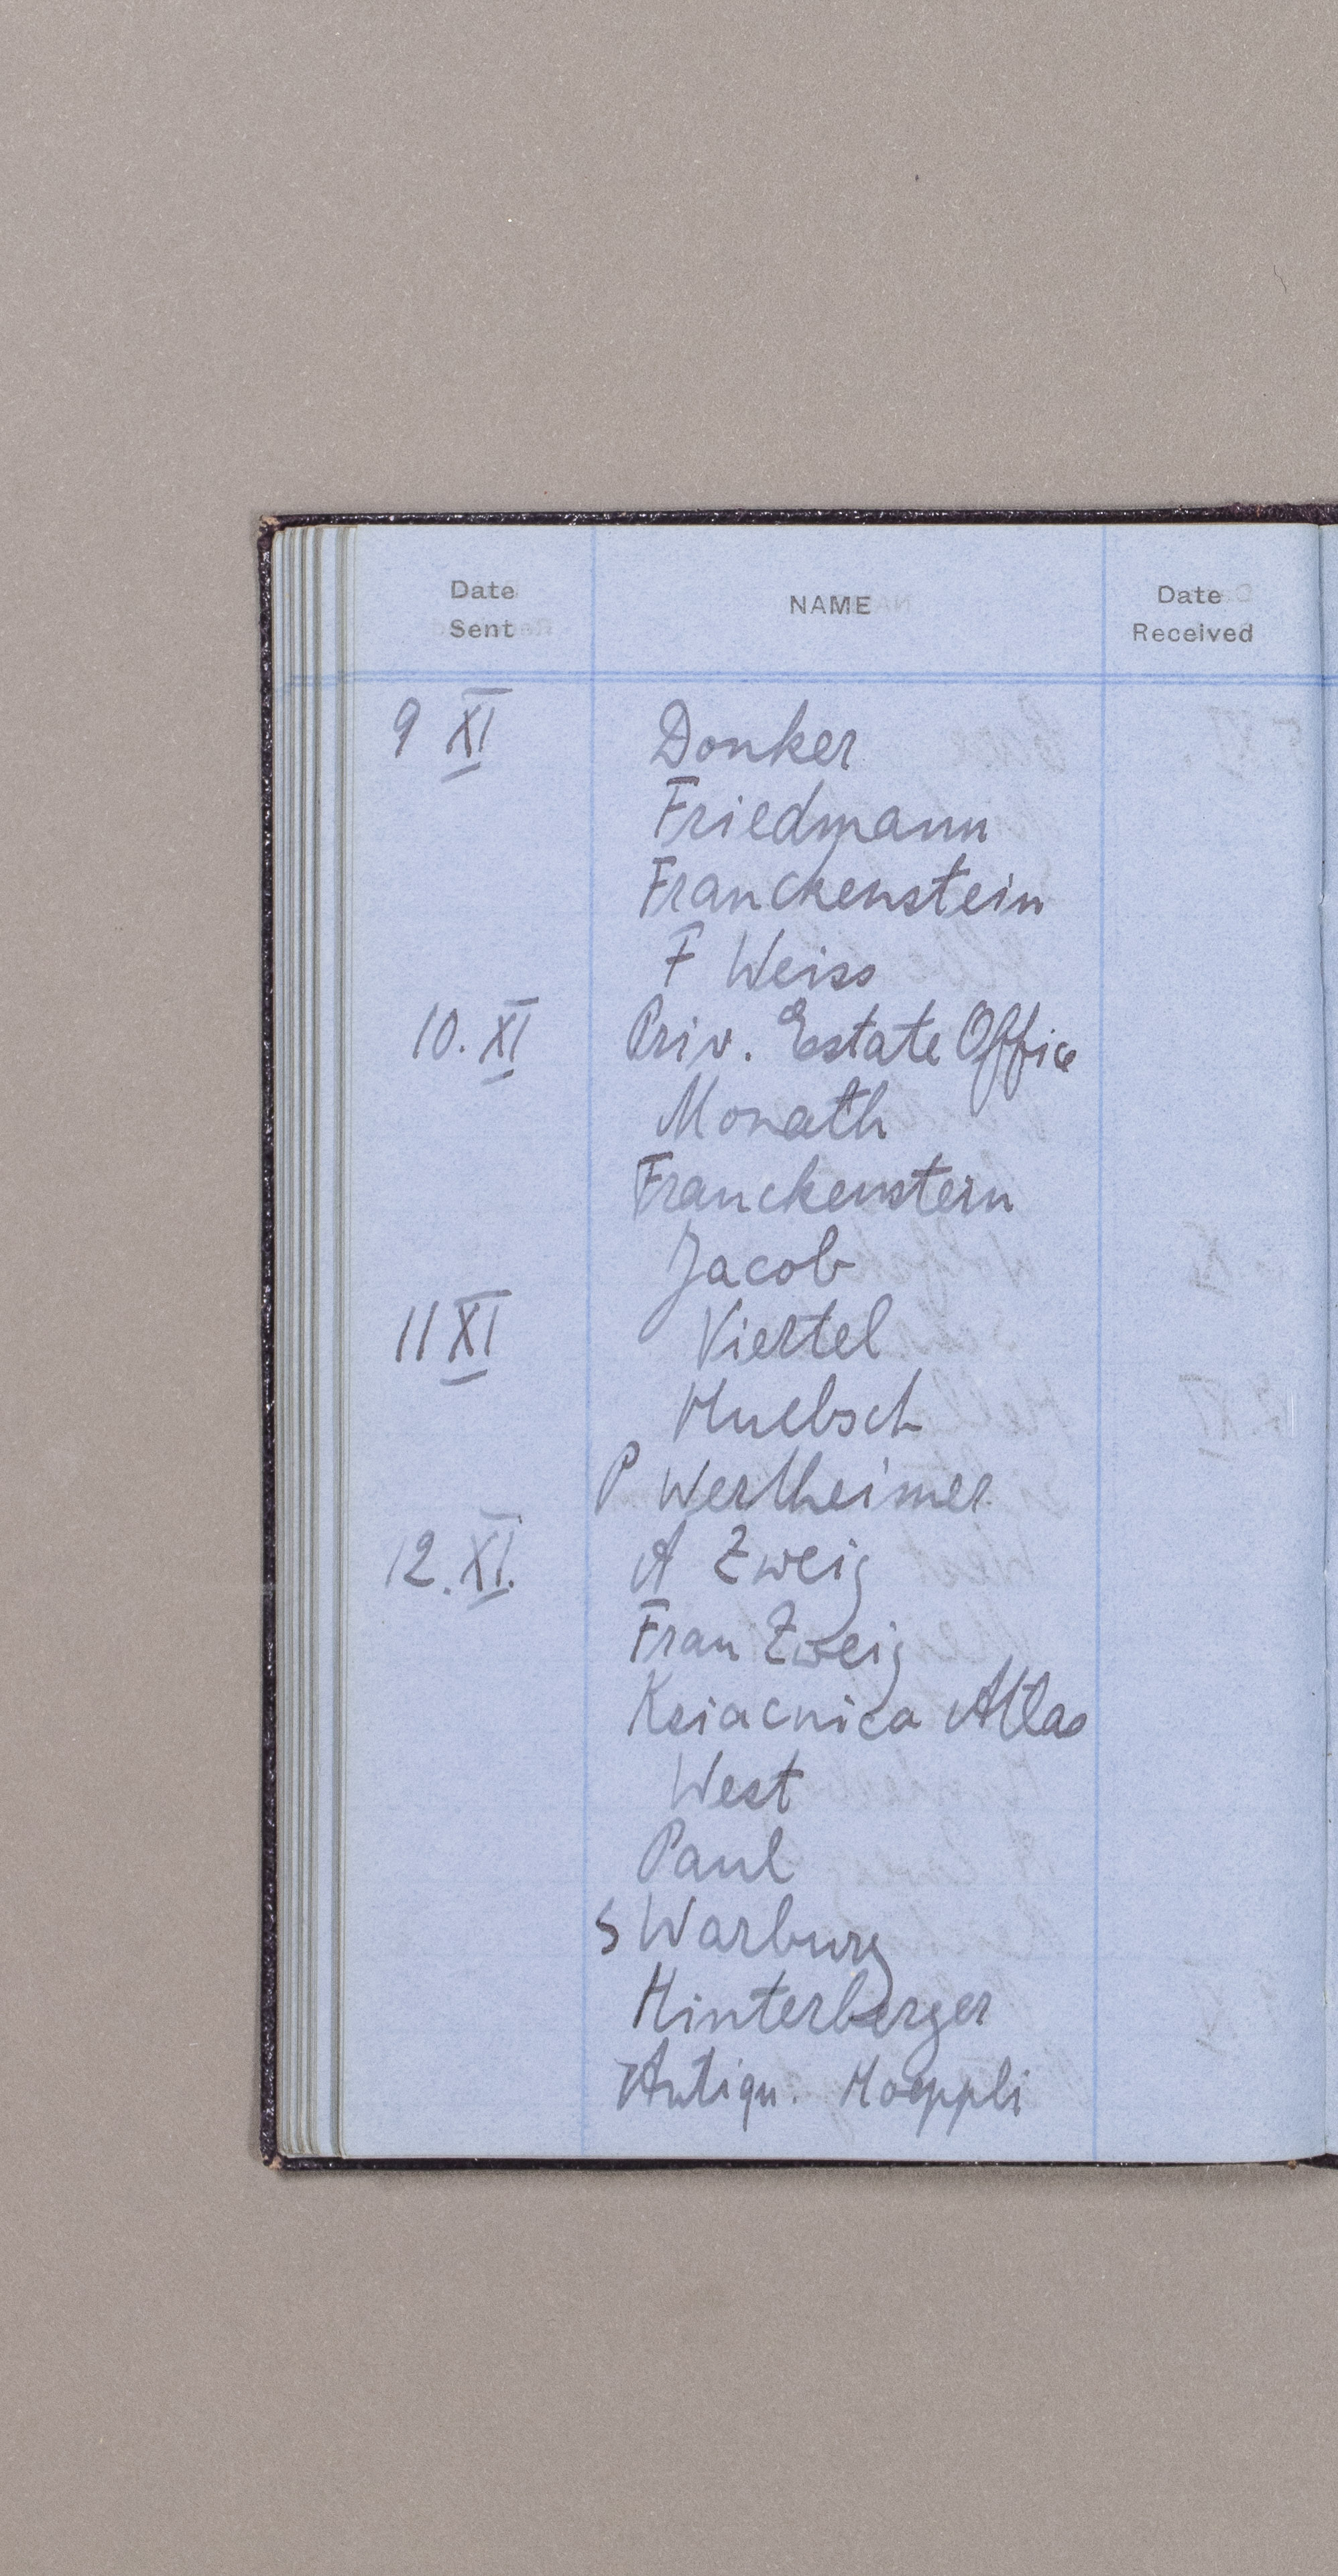 Date Sent NAME Date Received
9 XI Donker
Friedmann
Franckenstein
F Weiss
10. XI Priv. Estate Office
Monath
Franckenstein
Jacob
11 XI Viertel
Huebsch
P Wertheimer
12. XI. A Zweig
Frau Zweig
Ksiacnica Atlas
West
Paul
S Warburg
Hinterberger
Antiqu. Hoeppli